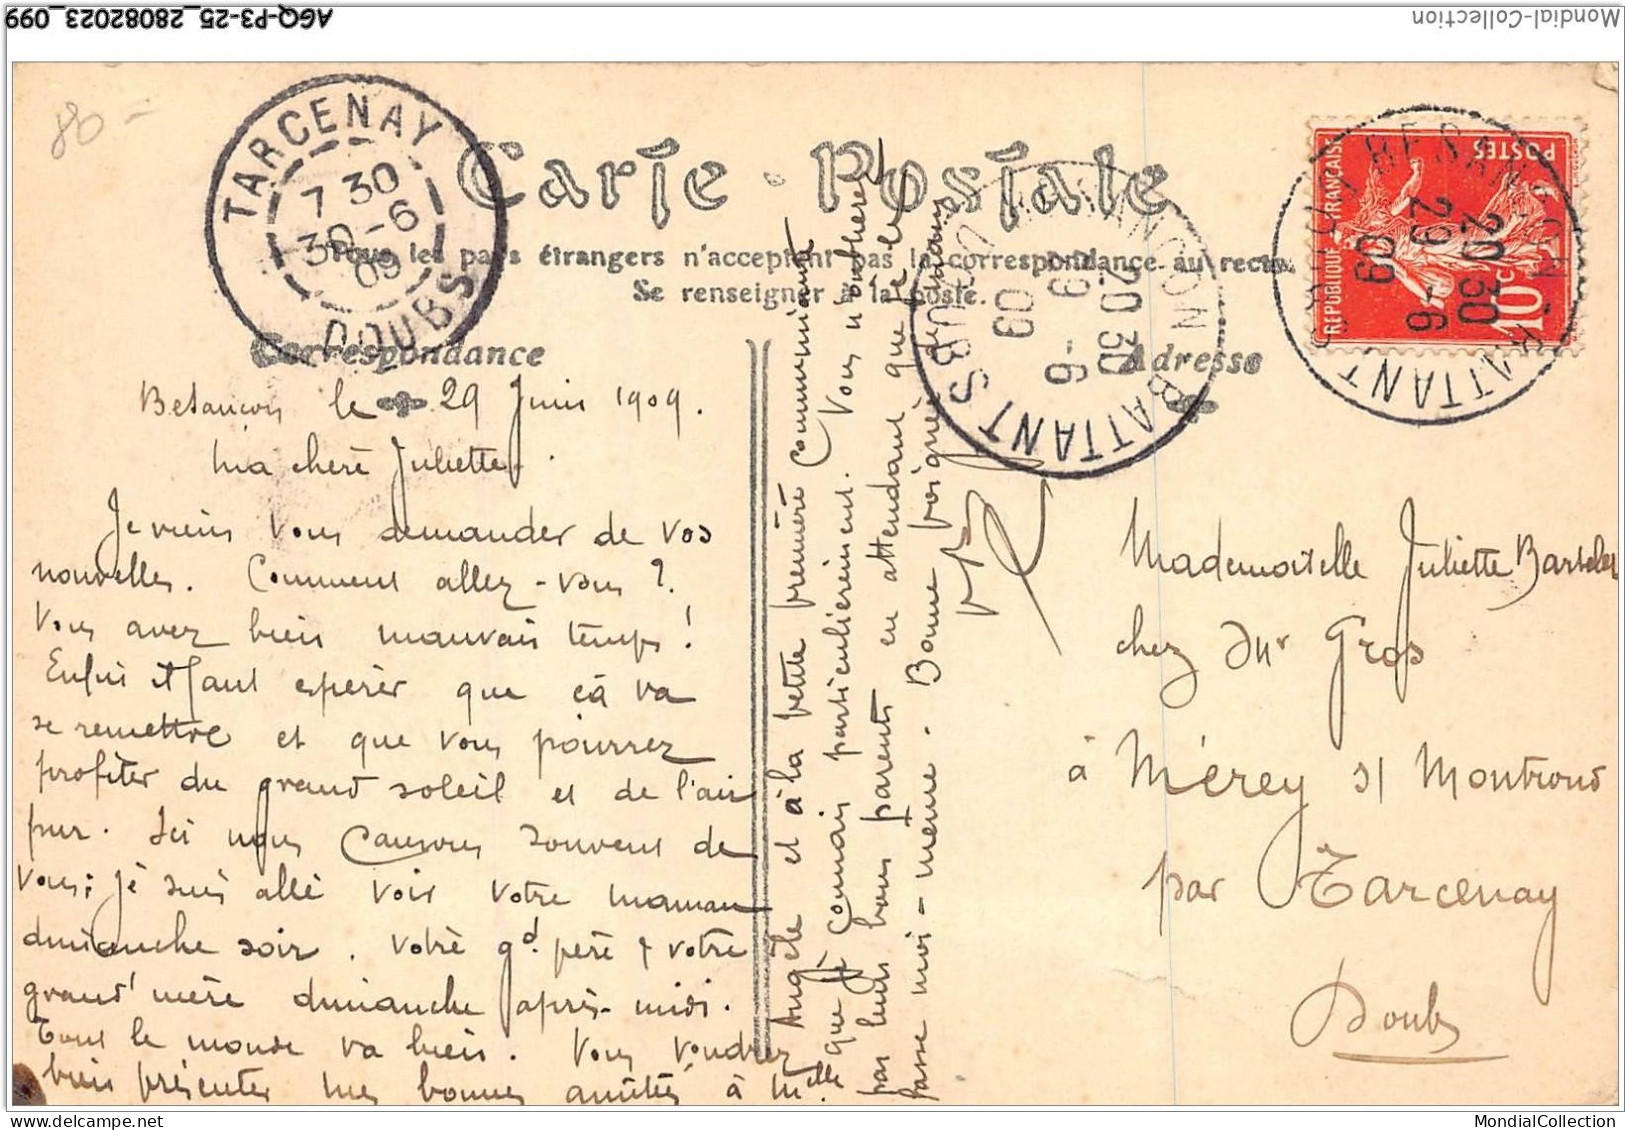 AGQ-P3-25_28082023_099
Mondial-Collection
80 -
TARCENAY
7 30
30 -6
09
DOUBS
Carte Postale
Tous les pays étrangers n'acceptent pas la correspondance au recto.
Se renseigner à la poste.
BESANÇON BATTANT
20 30
29 -6
09
DOUBS
REPUBLIQUE FRANÇAISE
POSTES
10c
BESANÇON BATTANT
20 30
29 -6
09
DOUBS
Correspondance
Adresse
Besançon le 29 Juin 1909.
Ma chère Juliette.
Je viens vous demander de vos
nouvelles. Comment allez-vous ?
Vous avez bien mauvais temps !
Enfin il faut espérer que çà va
se remettre et que vous pourrez
profiter du grand soleil et de l'air
pur. Ici nous causons souvent de
vous ; je suis allé voir votre maman
dimanche soir. Votre gd père & votre
grand'mère dimanche après-midi.
Tout le monde va bien. Vous voudrez
bien présenter mes bonnes amitiés à Melle
Angèle et à la petite première communiante
que je connais particulièrement. Vous n'oublierez
pas leurs bons parents en attendant que je le
fasse moi-même. Bonne poignée de mains
Mademoiselle Juliette
chez Mr Gros
à Mérey s/ Montrond
par Tarcenay
Doubs
MondialCollection